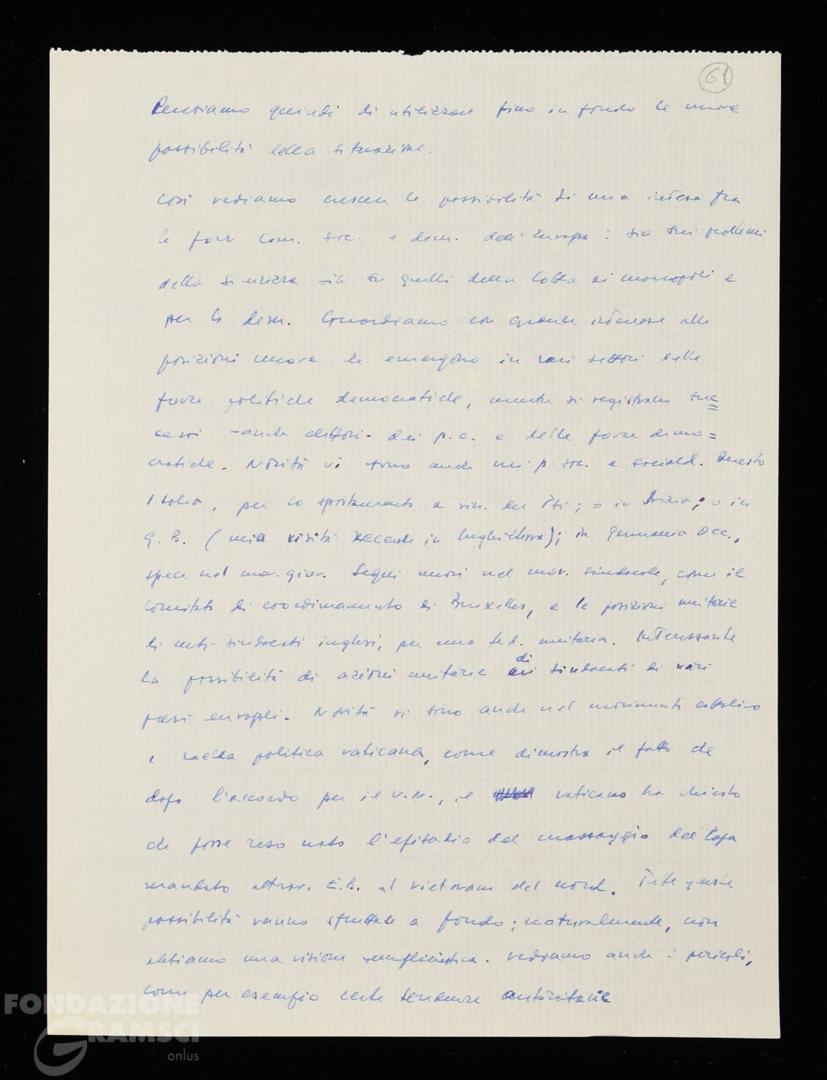 61
Pensiamo quindi di utilizzare fino in fondo le nuove
possibilità della situazione.
Così vediamo crescere le possibilità di una intesa fra
le forze com. soc. e dem. dell'Europa: sia sui problemi
della sicurezza sia su quelli della lotta ai monopoli e
per la dem. Guardiamo con grande interesse alle
posizioni nuove che emergono in vari settori delle
forze politiche democratiche, mentre si registrano suc=
cessi - anche elettor. - dei p.c. e delle forze demo=
cratiche. Novità vi sono anche nei p. soc. e sociald. Questo
Italia, per lo spostamento a sin. del Psi; o in Svezia; o in
G.B. (mia visita recente in Inghilterra); in Germania Occ.,
spece nel mov. giov. Segni nuovi nel mov. sindacale, come il
comitato di coordinamento di Bruxelles, e le posizioni unitarie
di certi sindacati inglesi, per una fed. unitaria. Interessante
la possibilità di azioni unitarie di sindacati di vari
paesi europei. Novità vi sono anche nel movimento cattolico
e nella politica vaticana, come dimostra il fatto che
dopo l'accordo per il V.N., il vaticano ha chiesto
che fosse reso noto l'episodio del messaggio del Papa
mandato attrav. E.B. al vietnam del nord. Tutte queste
possibilità vanno sfruttate a fondo; naturalmente, non
abbiamo una visione semplicistica. Vediamo anche i pericoli,
come per esempio certe tendenze autoritarie
FONDAZIONE
GRAMSCI
onlus